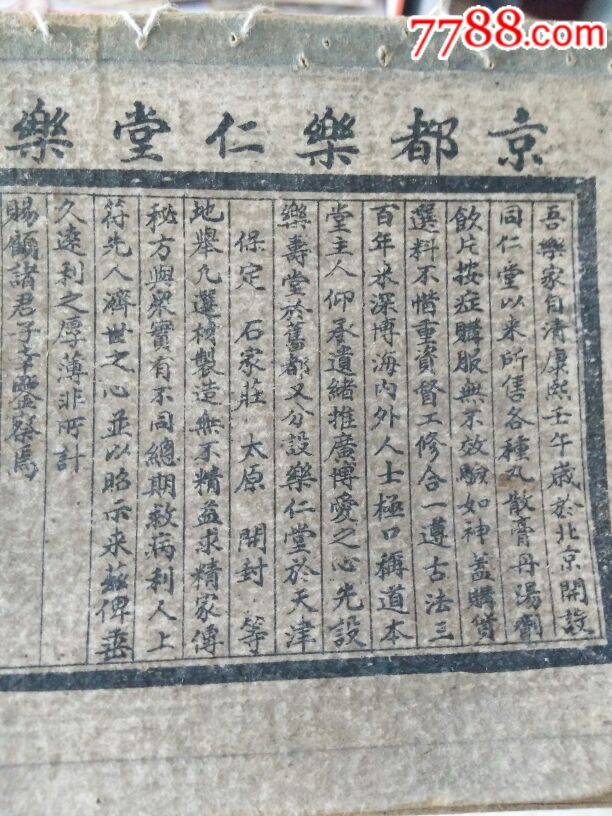 7788.com
京都樂仁堂樂
吾樂家自清康熙壬午歲於北京開設
同仁堂以來所售各種丸散膏丹湯劑
飲片按症購服無不效驗如神蓋購貨
選料不惜重資督工修合一遵古法三
百年來深博海內外人士極口稱道本
堂主人仰承遺緒推廣博愛之心先設
樂壽堂於舊都又分設樂仁堂於天津
保定 石家莊 太原 開封 等
地舉凡選材製造無不精益求精家傳
秘方與眾實有不同總期救病利人上
符先人濟世之心並以昭示來茲俾垂
久遠利之厚薄非所計
賜顧諸君子幸鑒察焉